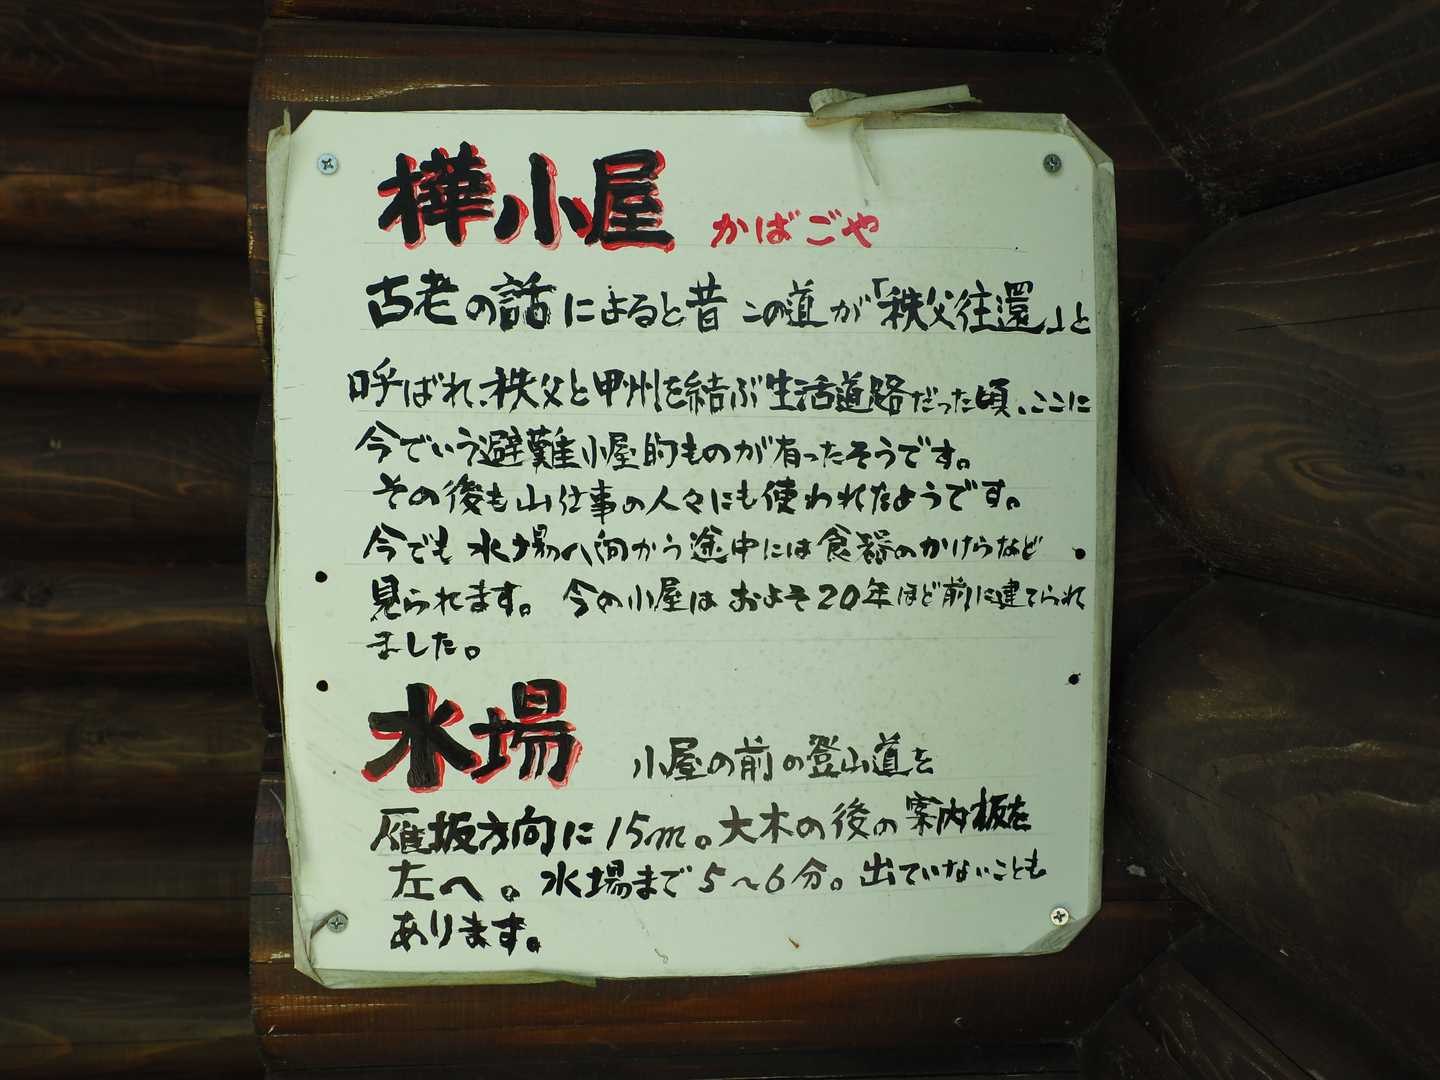 樺小屋 かばごや
古老の話によると昔この道が「秩父往還」と
呼ばれ、秩父と甲州を結ぶ生活道路だった頃、ここに
今でいう避難小屋的ものが有ったそうです。
その後も山仕事の人々にも使われたようです。
今でも水場へ向かう途中には食器のかけらなど
見られます。今の小屋はおよそ20年ほど前に建てられ
ました。
水場 小屋の前の登山道を
雁坂方向に15m。大木の後の案内板を
左へ。水場まで5〜6分。出ていないことも
あります。